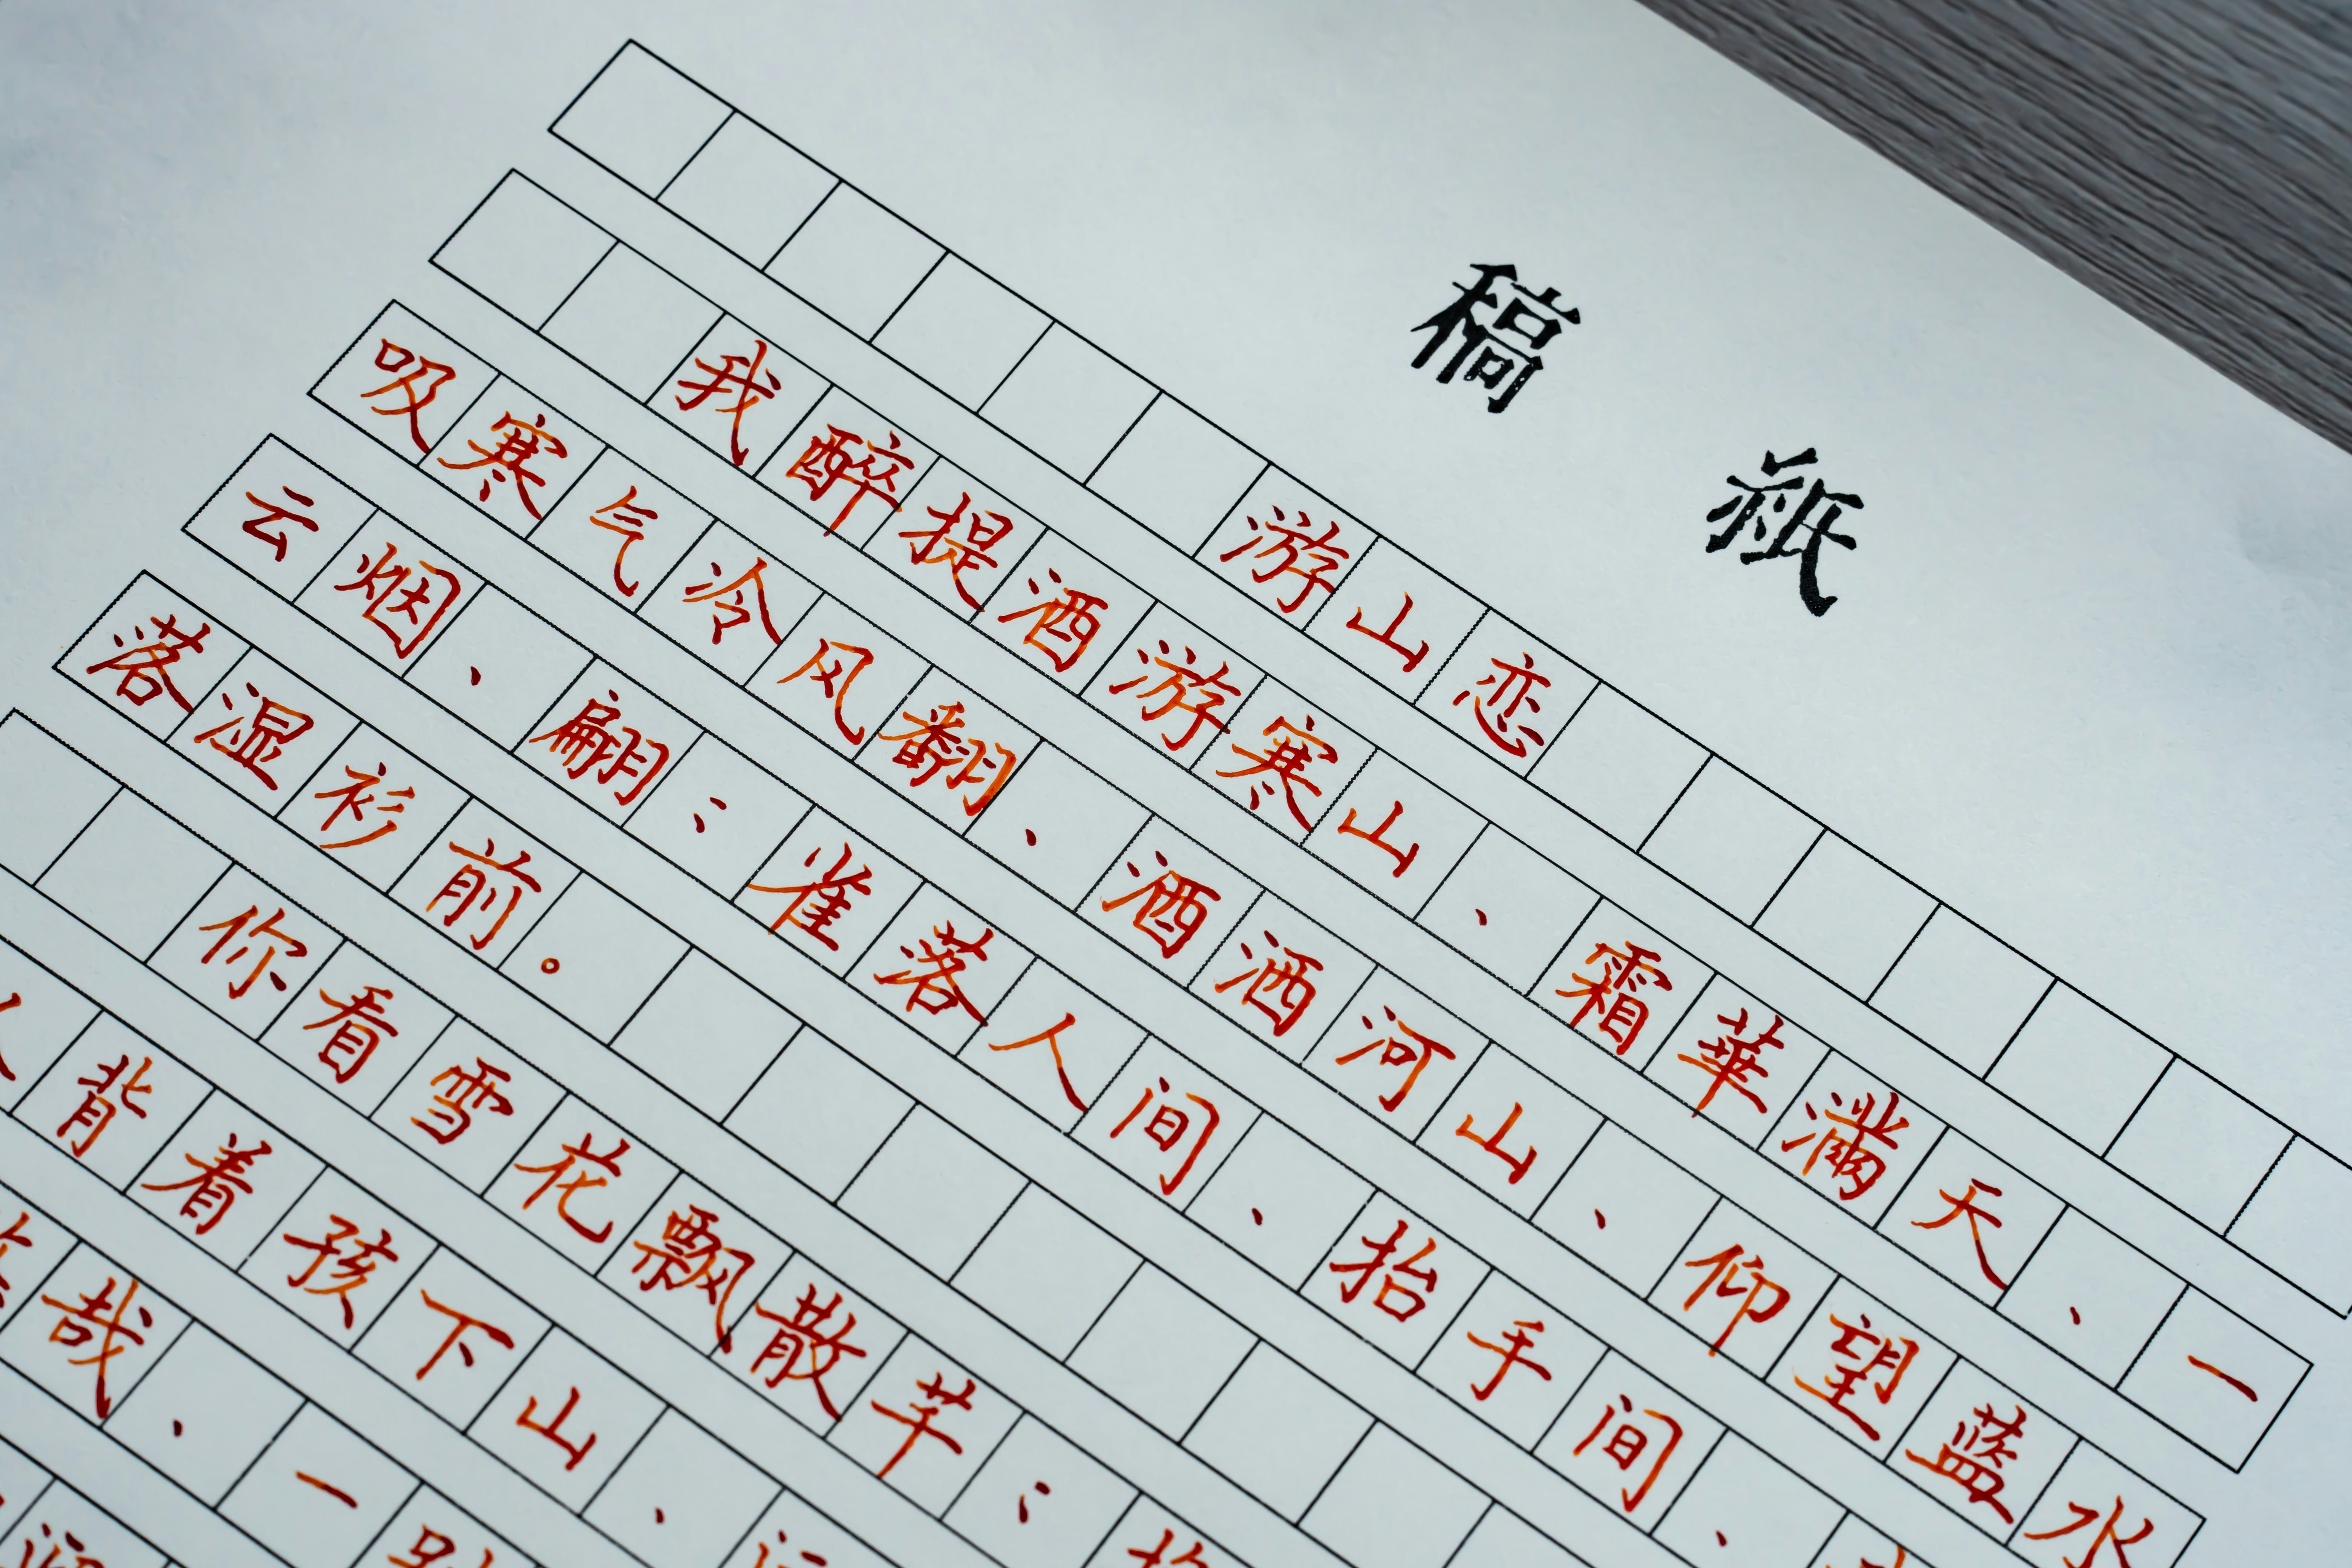 稿紙
游山恋
我醉提酒游寒山、霜華滿天、一
吸寒气冷风翻、酒洒河山、仰望蓝水
云烟、翩；雀落人间、抬手间、
落湿衫前。
你看雪花飘散芊；
背着孩下山、
哉、一